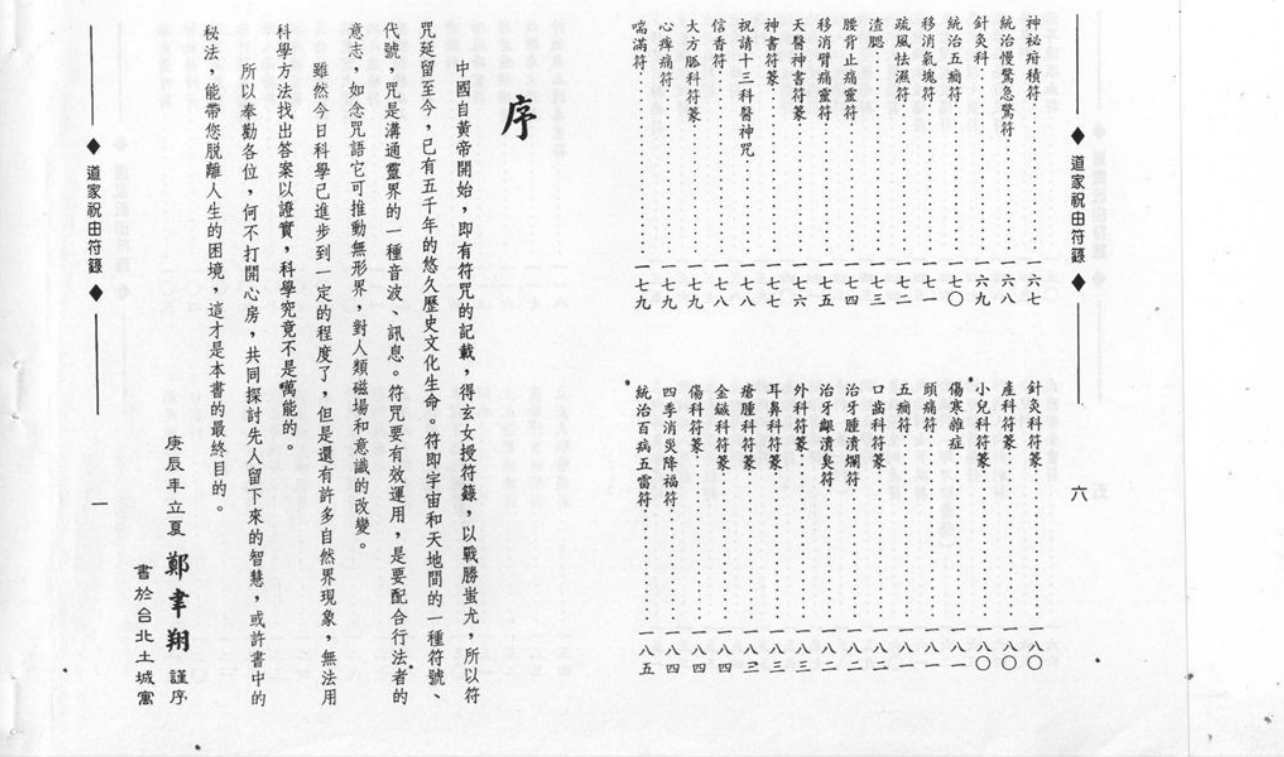 ◆ 道家祝由符籙 ◆ 六
神祕疳積符……一六七
統治慢驚急驚符……一六八
針灸科……一六九
統治五癇符……一七〇
移消氣塊符……一七一
疏風怯濕符……一七二
渣腮……一七三
腰背止痛靈符……一七四
移消臂痛靈符……一七五
天醫神書符篆……一七六
神書符篆……一七七
祝請十三科醫神咒……一七八
信香符……一七八
大方脈科符篆……一七九
心痺痛符……一七九
喘滿符……一七九
針灸科符篆……一八〇
產科符篆……一八〇
小兒科符篆……一八〇
傷寒雜症……一八一
頭痛符……一八一
五癇符……一八一
口齒科符篆……一八二
治牙腫潰爛符……一八二
治牙齦潰臭符……一八二
外科符篆……一八三
耳鼻科符篆……一八三
瘡腫科符篆……一八三
金鏃科符篆……一八四
傷科符篆……一八四
四季消災降福符……一八四
統治百病五雷符……一八五
序
中國自黃帝開始，即有符咒的記載，得玄女授符籙，以戰勝蚩尤，所以符
咒延留至今，已有五千年的悠久歷史文化生命。符即宇宙和天地間的一種符號、
代號，咒是溝通靈界的一種音波、訊息。符咒要有效運用，是要配合行法者的
意志，如念咒語它可推動無形界，對人類磁場和意識的改變。
雖然今日科學已進步到一定的程度了，但是還有許多自然界現象，無法用
科學方法找出答案以證實，科學究竟不是萬能的。
所以奉勸各位，何不打開心房，共同探討先人留下來的智慧，或許書中的
秘法，能帶您脫離人生的困境，這才是本書的最終目的。
庚辰年立夏 鄭聿翔 謹序
書於台北土城寓
◆ 道家祝由符籙 ◆ 一